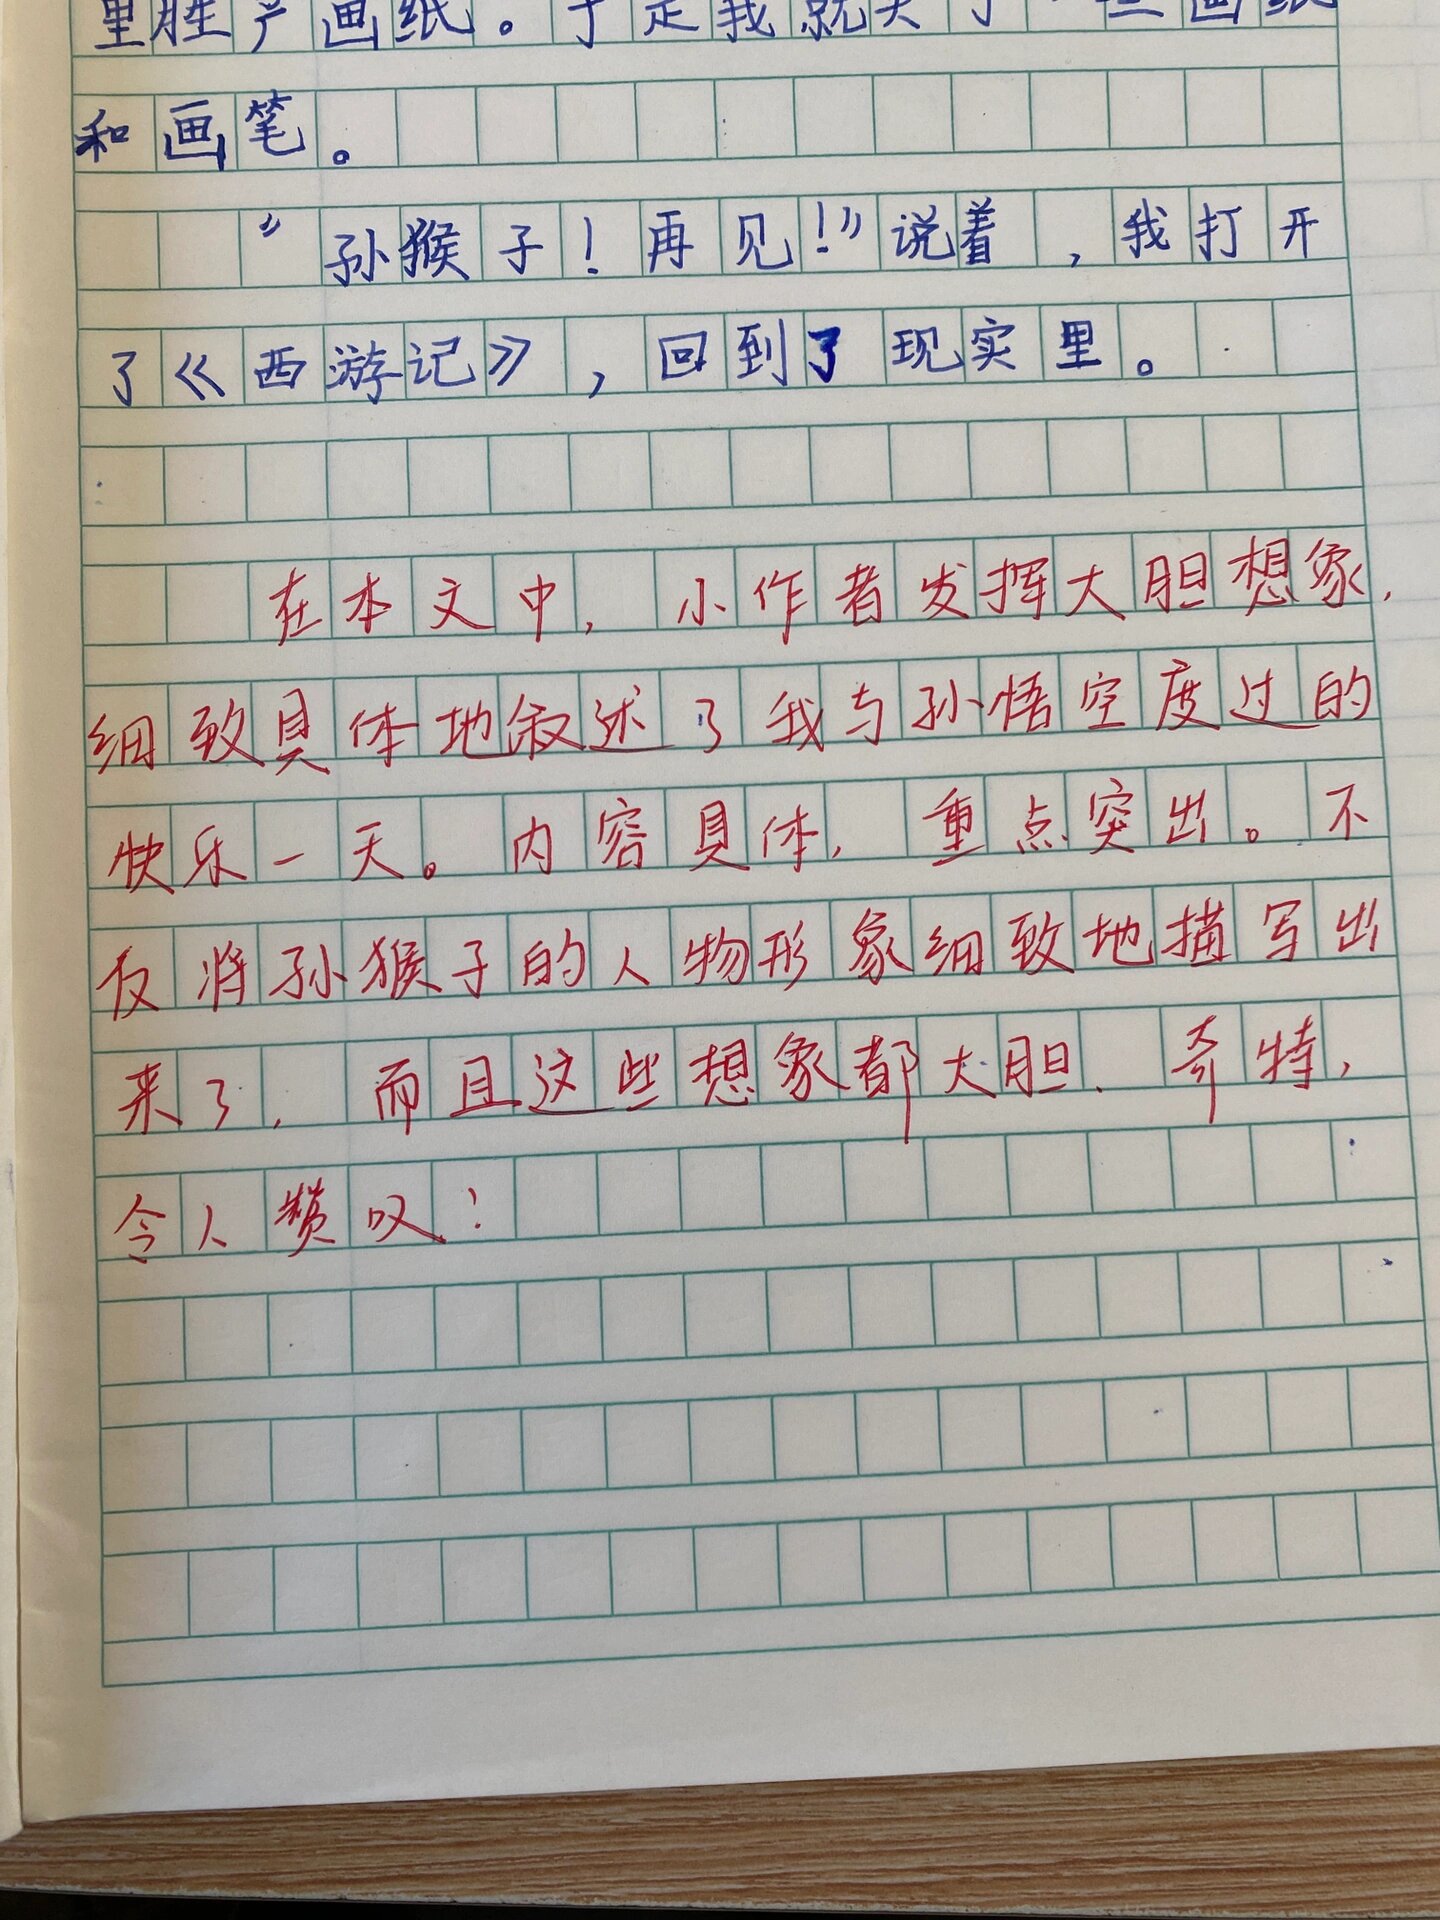 里胜产画纸。于是我就买了一些画纸
和画笔。
“孙猴子！再见！”说着，我打开
了《西游记》，回到了现实里。
在本文中，小作者发挥大胆想象，
细致具体地叙述了我与孙悟空度过的
快乐一天。内容具体，重点突出。不
反将孙猴子的人物形象细致地描写出
来了，而且这些想象都大胆、奇特，
令人赞叹！